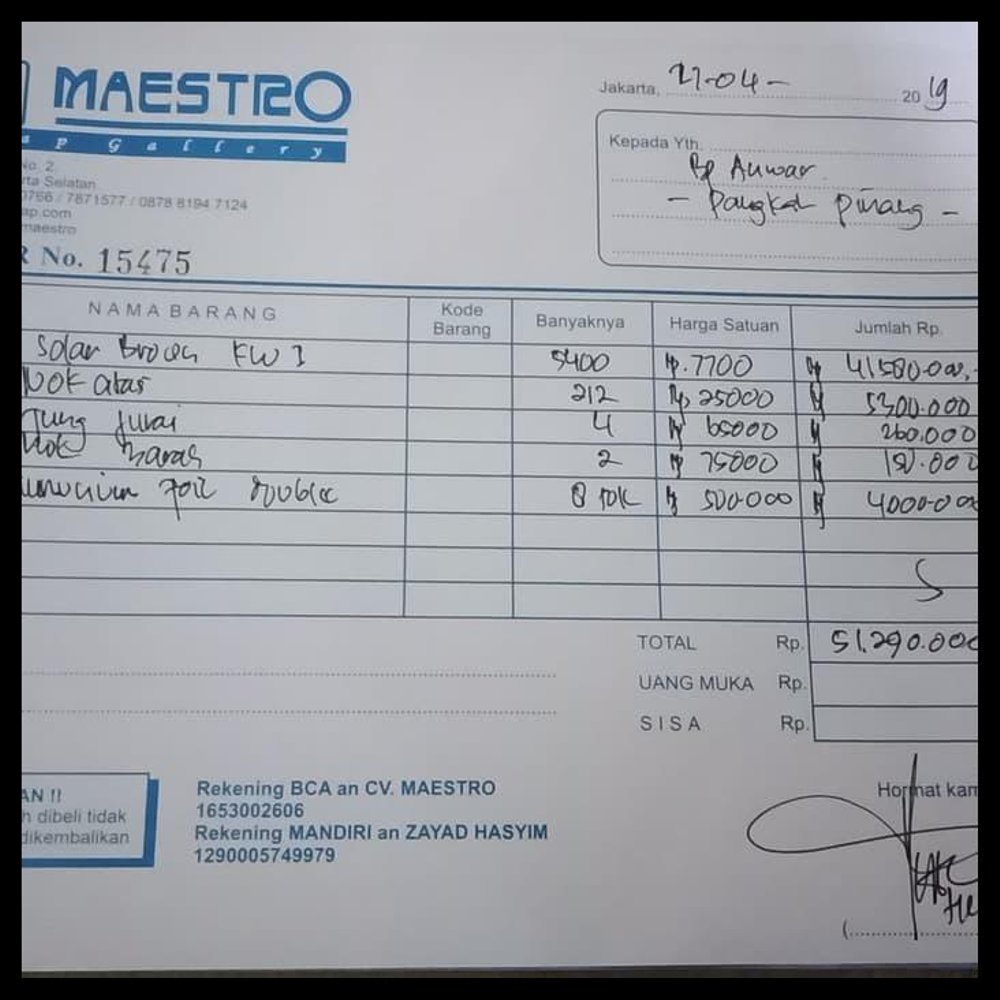 MAESTRO
p Gallery
No. 2
rta Selatan
0766 / 7871577 / 0878 8194 7124
ap.com
maestro
R No. 15475
Jakarta, 27-04- 2019
Kepada Yth.
Bp Anwar.
- Pangkal Pinang -
NAMA BARANG Kode Barang Banyaknya Harga Satuan Jumlah Rp.
Solar KW I 5400 Rp. 7700 Rp 41580.000,-
Nok atas 212 Rp 25000 Rp 5300.000
Jung Jurai 4 Rp 65000 Rp 260.000
Nok 2 Rp 75000 Rp 150.000
foil double 8 rok Rp 500.000 Rp 4000.000
TOTAL Rp. 51.290.000
UANG MUKA Rp.
SISA Rp.
AN !!
h dibeli tidak
dikembalikan
Rekening BCA an CV. MAESTRO
1653002606
Rekening MANDIRI an ZAYAD HASYIM
1290005749979
Hormat kam